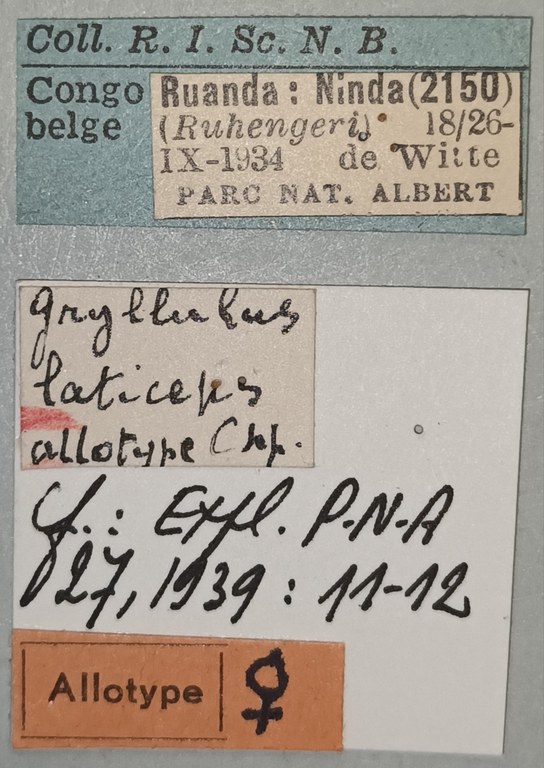 Coll. R. I. Sc. N. B.
Congo belge
Ruanda: Ninda (2150)
(Ruhengeri) 18/26-
IX-1934 de Witte
PARC NAT. ALBERT
Gryllulus
laticeps
allotype Chp.
cf.: Expl. P.N.A
27, 1939: 11-12
Allotype ♀